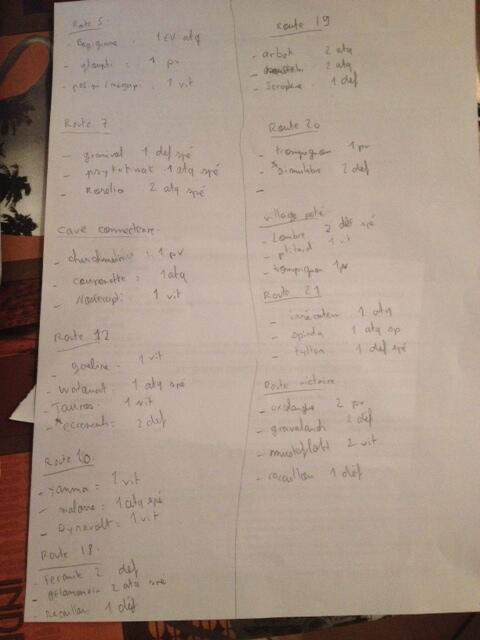 Route 5
- : 1 EV atq
- gloupti : 1 pv
- posipi/négapi : 1 vit
Route 7
- granivol 1 def spé
- psykokwak 1 atq spé
- Roselia 2 atq spé
Cave connectrice
- chuchmur : 1 pv
- couronette : 1 atq
- Nosferapti : 1 vit
Route 12
- goelise : 1 vit
- wattouat : 1 atq spé
- Tauros : 1 vit
- * ecremeuh : 2 def
Route 10
- Yanma = 1 vit
- malosse = 1 atq spé
- Dynavolt = 1 vit
Route 18
- Feramit 2 def
- Aflamanoir 2 atq spé
- racaillou 1 def
Route 19
- arbok 2 atq
- 2 atq
- Scorplane 1 def
Route 20
- trompignon 1 pv
- * Simulabre 2 def
-
village
- Lombre 2 def spé
- ptitard 1 vit
- trompignon 1 pv
Route 21
- insécateur 1 atq
- spinda 1 atq sp
- tylton 1 def spé
Route victoire
- excelangue 2 pv
- gravalanch 2 def
- mustéflott 2 vit
- racaillou 1 def